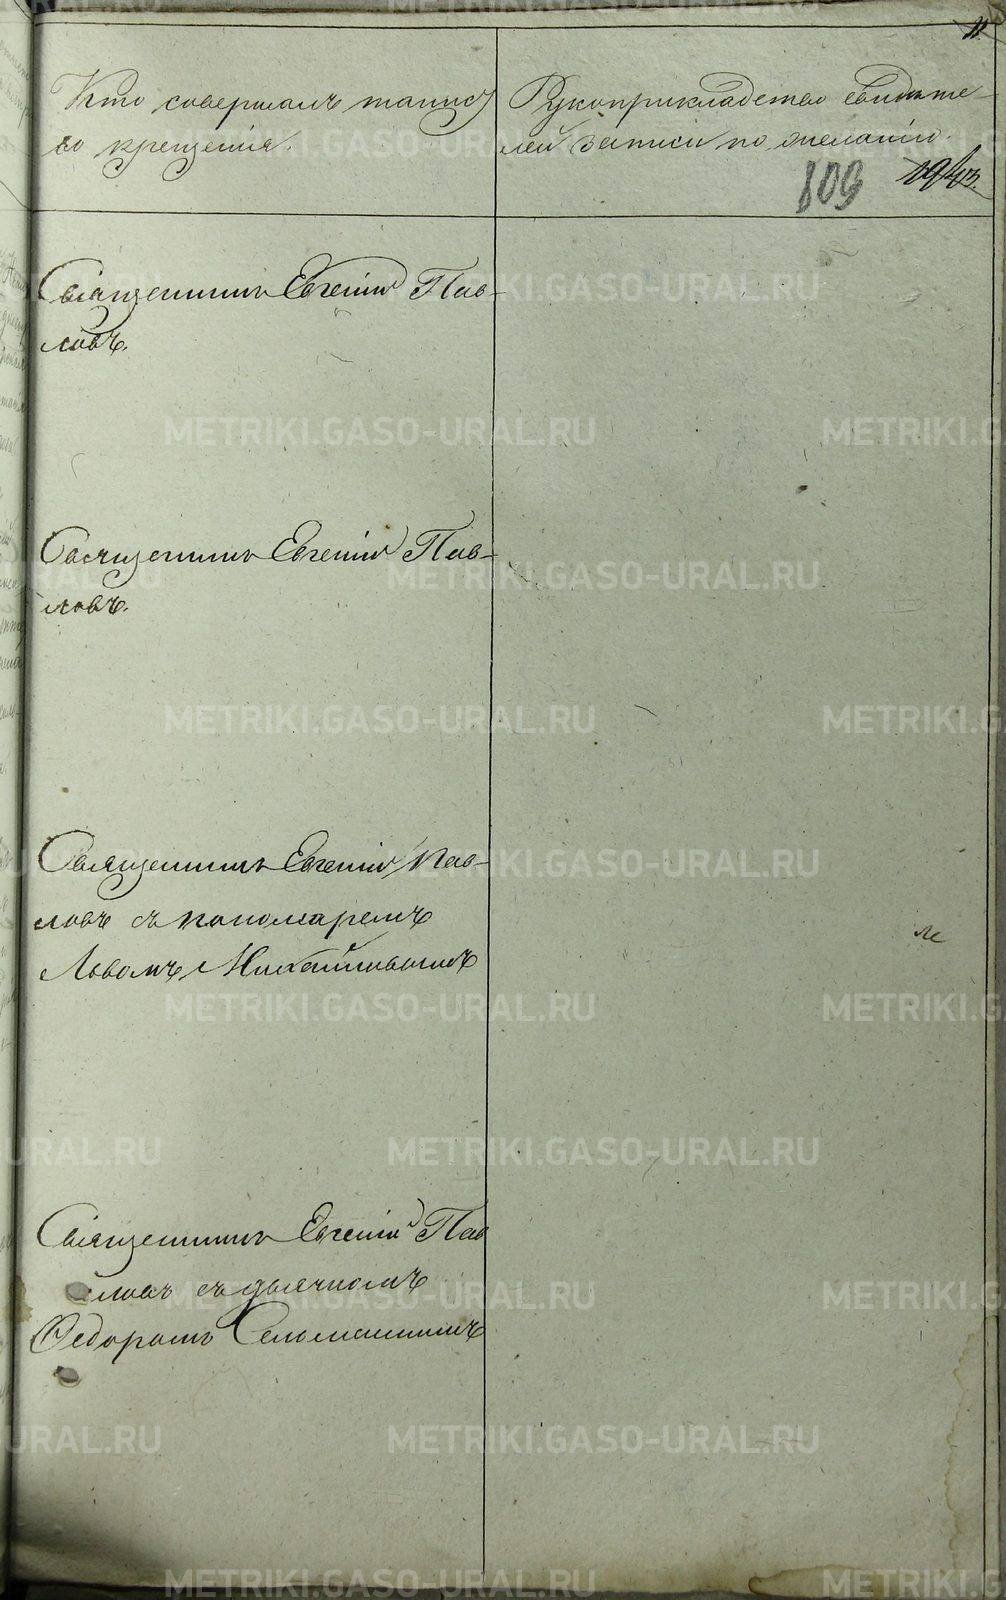 11
Кто совершалъ таинст
во крещенія.
Рукоприкладство свидѣте-
лей записи по желанію.
809
Священникъ Евгеній Пав-
ловъ.
Священникъ Евгеній Пав-
ловъ.
Священникъ Евгеній Пав-
ловъ съ пономаремъ
Львомъ Михайловымъ
Священникъ Евгеній Пав
ловъ съ дьячкомъ
Ѳедоромъ
METRIKI.GASO-URAL.RU